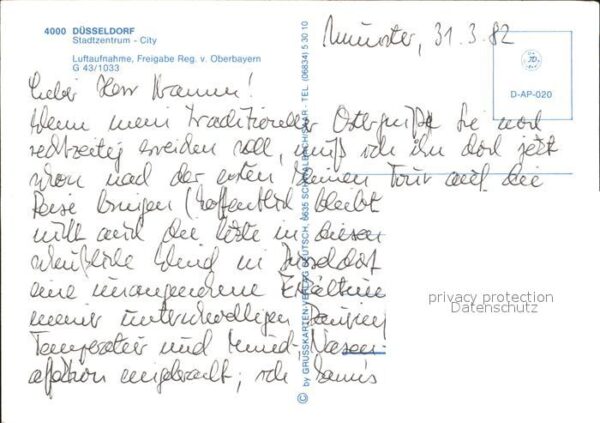 4000 DÜSSELDORF
Stadtzentrum - City
Luftaufnahme, Freigabe Reg. v. Oberbayern
G 43/1033
Münster, 31.3.82
D-AP-020
Lieber Herr Kramm!
Wenn mein traditioneller Ostergruß Sie noch
rechtzeitig erreichen soll, muß ich ihn doch jetzt
schon nach der ersten kleinen Tour auf die
Reise bringen (hoffentlich bleibt
nicht auch die letzte in diesem
Wind in Düsseldorf
eine unangenehme Erkältung
meiner
Temperatur und Mund-Nasen-
eingebracht; ich
© by GRUSSKARTEN-VERLAG DEUTSCH, 6635 SCHWALBACH/SAAR - TEL. (06834) 5 30 10
privacy protection
Datenschutz